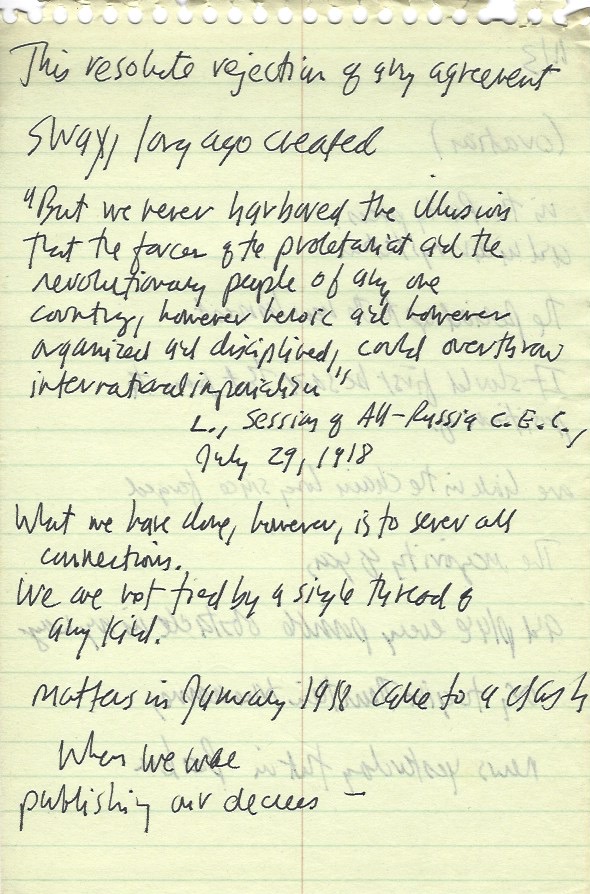 This resolute rejection of any agreement
sway, long ago created
"But we never harbored the illusion
that the forces of the proletariat and the
revolutionary people of any one
country, however heroic and however
organized and disciplined, could overthrow
international imperialism"
L., Session of All-Russia C.E.C.,
July 29, 1918
What we have done, however, is to sever all
connections.
We are not tied by a single thread of
any kind.
Matters in January 1918 came to a clash
When we were
publishing our decrees —